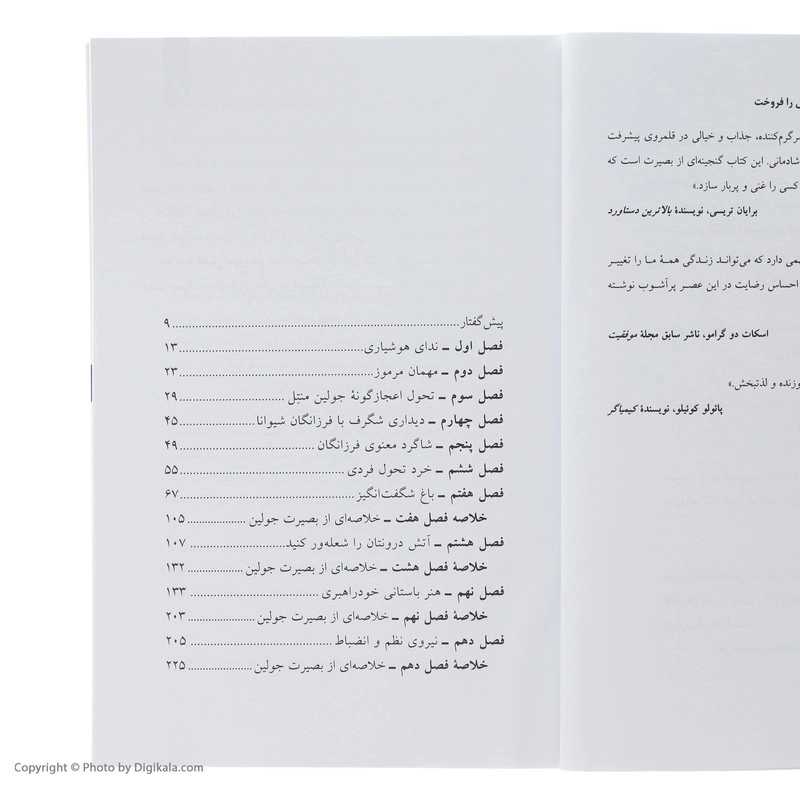 را فروخت
سرگرم‌کننده، جذاب و خیالی در قلمروی پیشرفت
شادمانی. این کتاب گنجینه‌ای از بصیرت است که
کسی را غنی و پربار سازد.»
برایان تریسی، نویسندهٔ بالاترین دستاورد
دارد که می‌تواند زندگی همهٔ ما را تغییر
احساس رضایت در این عصر پرآشوب نوشته
اسکات دو گرامو، ناشر سابق مجلهٔ موفقیت
و لذتبخش.»
پائولو کوئیلو، نویسندهٔ کیمیاگر
پیش‌گفتار ........ ۹
فصل اول ـ ندای هوشیاری ........ ۱۳
فصل دوم ـ مهمان مرموز ........ ۲۳
فصل سوم ـ تحول اعجازگونهٔ جولین منتِل ........ ۲۹
فصل چهارم ـ دیداری شگرف با فرزانگان شیوانا ........ ۴۵
فصل پنجم ـ شاگرد معنوی فرزانگان ........ ۴۹
فصل ششم ـ خرد تحول فردی ........ ۵۵
فصل هفتم ـ باغ شگفت‌انگیز ........ ۶۷
خلاصه فصل هفت ـ خلاصه‌ای از بصیرت جولین ........ ۱۰۵
فصل هشتم ـ آتش درونتان را شعله‌ور کنید ........ ۱۰۷
خلاصهٔ فصل هشت ـ خلاصه‌ای از بصیرت جولین ........ ۱۳۲
فصل نهم ـ هنر باستانی خودراهبری ........ ۱۳۳
خلاصهٔ فصل نهم ـ خلاصه‌ای از بصیرت جولین ........ ۲۰۳
فصل دهم ـ نیروی نظم و انضباط ........ ۲۰۵
خلاصهٔ فصل دهم ـ خلاصه‌ای از بصیرت جولین ........ ۲۲۵
Copyright © Photo by Digikala.com